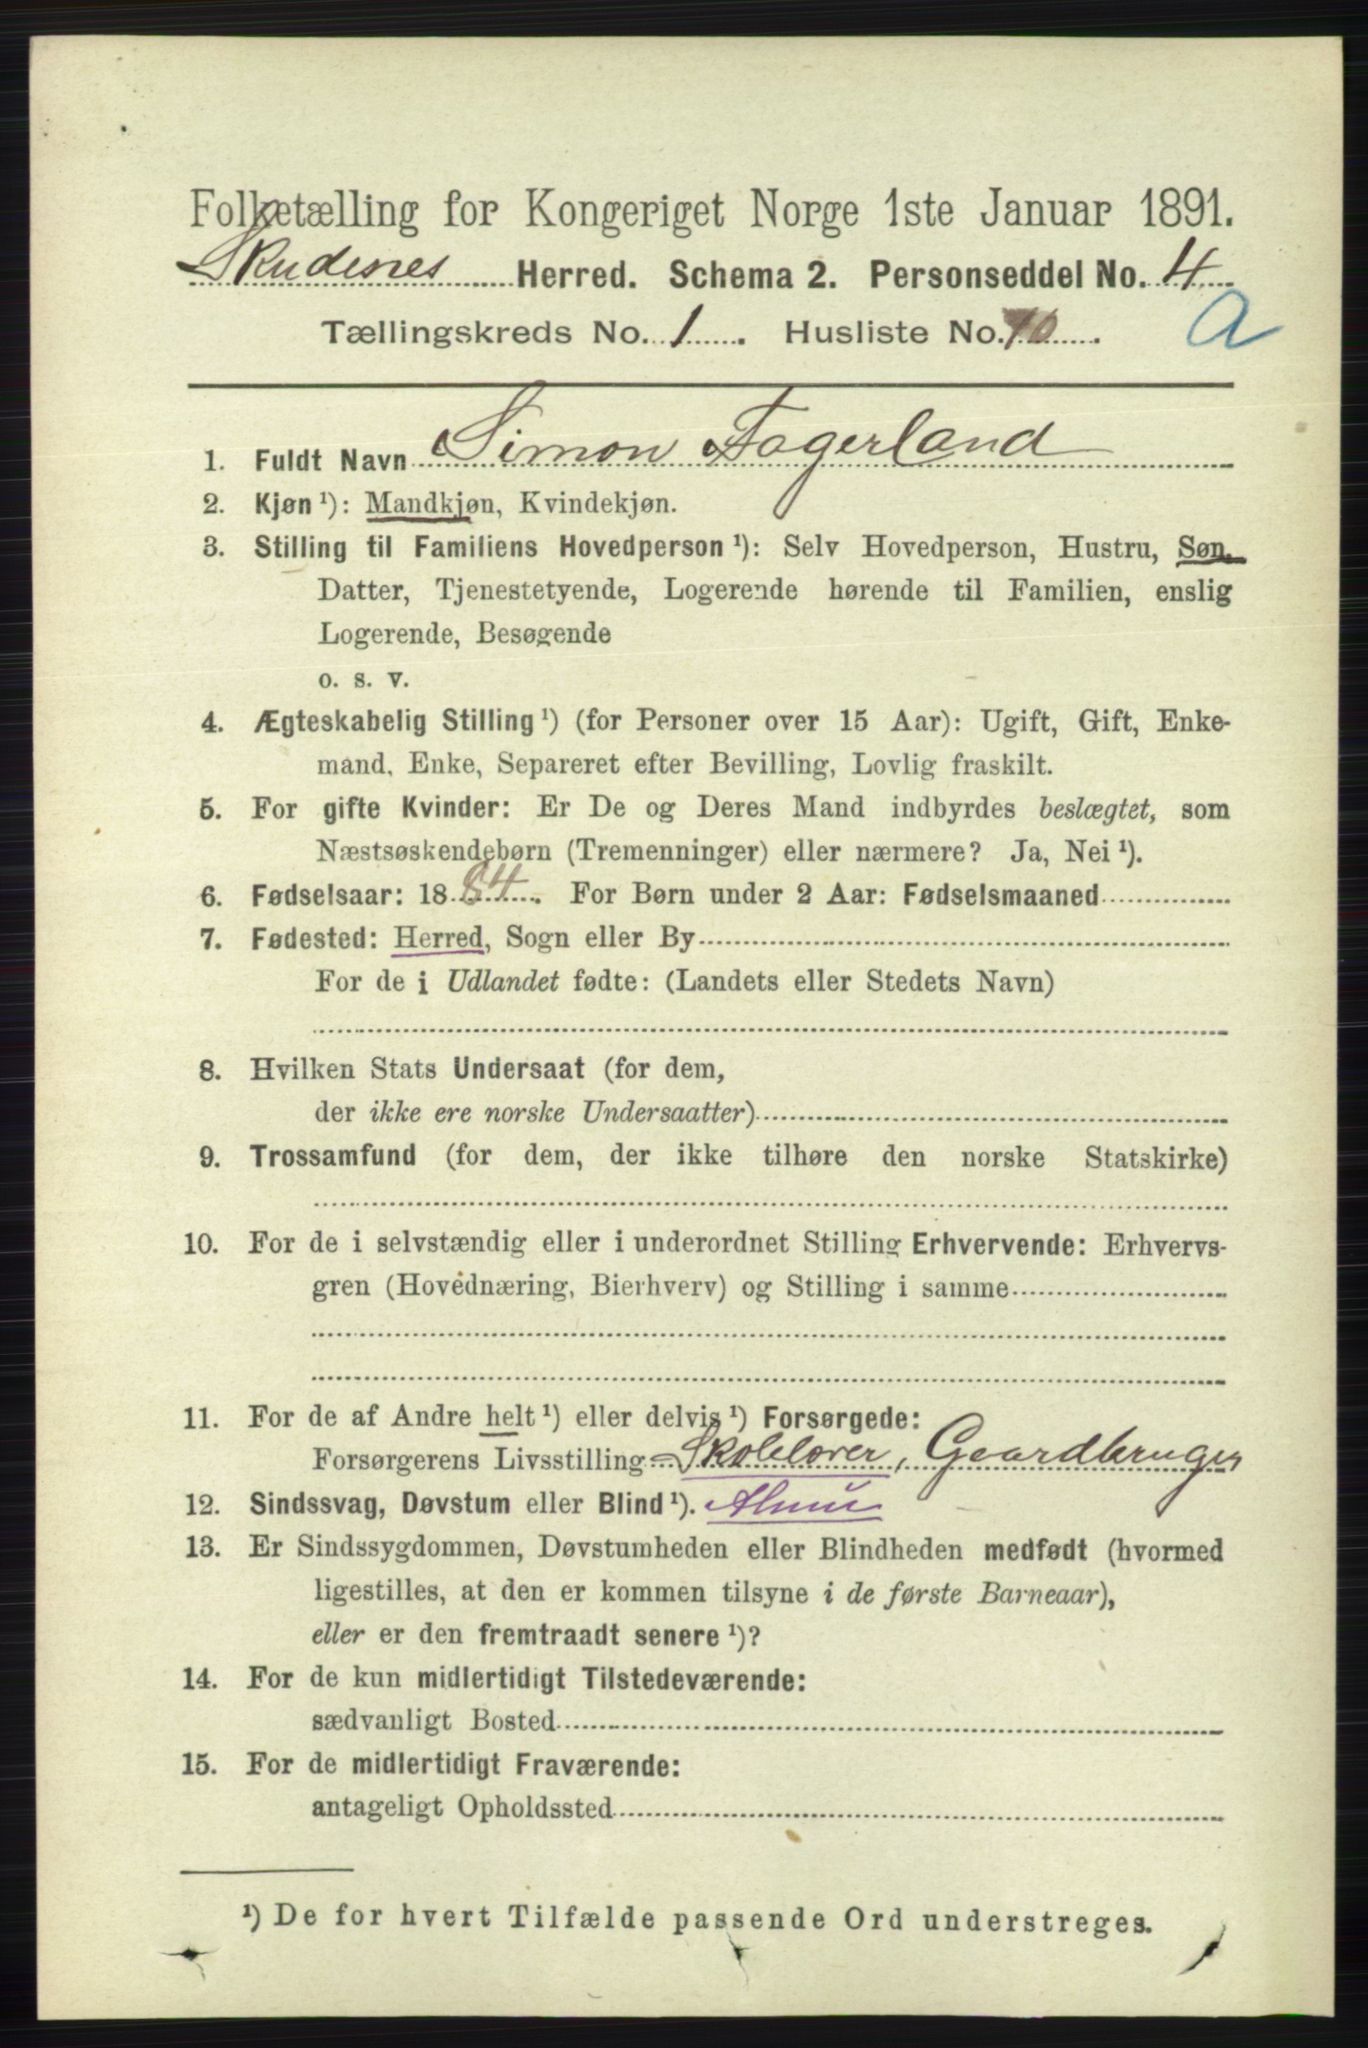 Folketælling for Kongeriget Norge 1ste Januar 1891.
Skudesnes Herred. Schema 2. Personseddel No. 4
Tællingskreds No. 1. Husliste No. 10. a
1. Fuldt Navn Simon Fagerland
2. Kjøn ¹): Mandkjøn, Kvindekjøn.
3. Stilling til Familiens Hovedperson ¹): Selv Hovedperson, Hustru, Søn,
Datter, Tjenestetyende, Logerende hørende til Familien, enslig
Logerende, Besøgende
o. s. v.
4. Ægteskabelig Stilling ¹) (for Personer over 15 Aar): Ugift, Gift, Enke-
mand, Enke, Separeret efter Bevilling, Lovlig fraskilt.
5. For gifte Kvinder: Er De og Deres Mand indbyrdes beslægtet, som
Næstsøskendebørn (Tremenninger) eller nærmere? Ja, Nei ¹).
6. Fødselsaar: 1884. For Børn under 2 Aar: Fødselsmaaned
7. Fødested: Herred, Sogn eller By
For de i Udlandet fødte: (Landets eller Stedets Navn)
8. Hvilken Stats Undersaat (for dem,
der ikke ere norske Undersaatter)
9. Trossamfund (for dem, der ikke tilhøre den norske Statskirke)
10. For de i selvstændig eller i underordnet Stilling Erhvervende: Erhvervs-
gren (Hovednæring, Bierhverv) og Stilling i samme
11. For de af Andre helt ¹) eller delvis ¹) Forsørgede:
Forsørgerens Livsstilling Skolelærer, Gaardbruger
12. Sindssvag, Døvstum eller Blind ¹).
13. Er Sindssygdommen, Døvstumheden eller Blindheden medfødt (hvormed
ligestilles, at den er kommen tilsyne i de første Barneaar),
eller er den fremtraadt senere ¹)?
14. For de kun midlertidigt Tilstedeværende:
sædvanligt Bosted
15. For de midlertidigt Fraværende:
antageligt Opholdssted
¹) De for hvert Tilfælde passende Ord understreges.